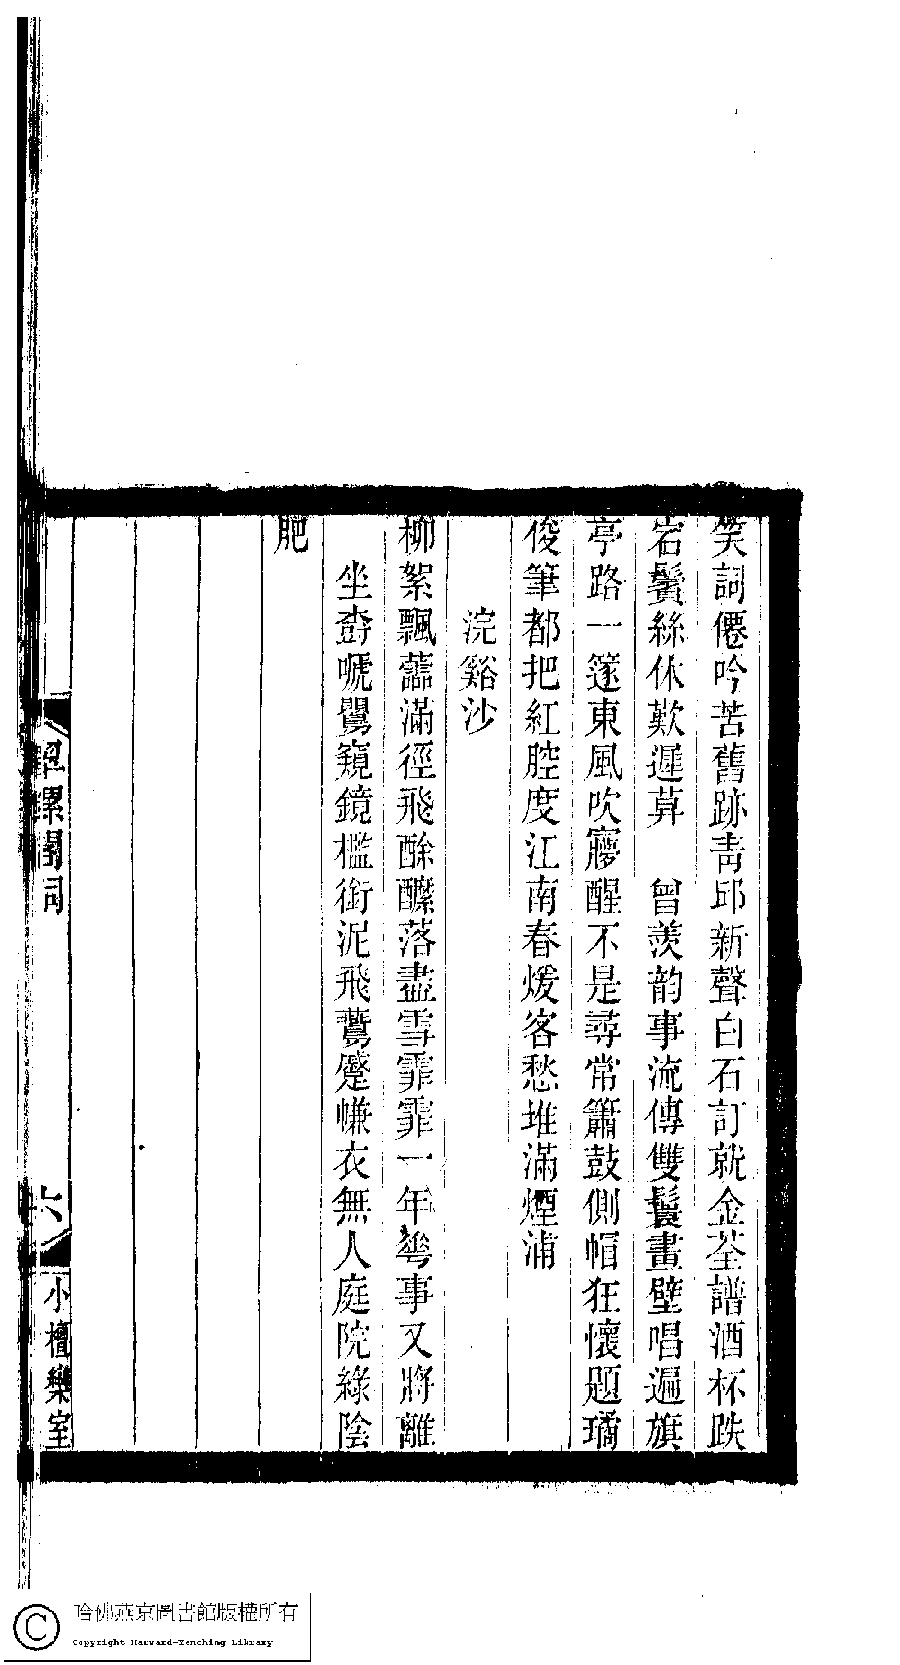 笑詞僊吟苦舊跡靑邱新聲白石訂就金荃譜酒杯跌
宕鬢絲休歎遲莫　曾羨韵事流傳雙鬟畫壁唱遍旗
亭路一篷東風吹寱醒不是尋常簫鼓側帽狂懷題璚
俊筆都把紅腔度江南春煖客愁堆滿煙浦
浣谿沙
柳絮飄蘦滿徑飛酴醾落盡雪霏霏一年蕐事又將離
坐嚲唬鸎窺鏡檻銜泥飛鷰蹙㡘衣無人庭院綠陰
肥
閣詞
六
小檀欒室
哈佛燕京圖書館版權所有
Copyright Harvard-Yenching Library